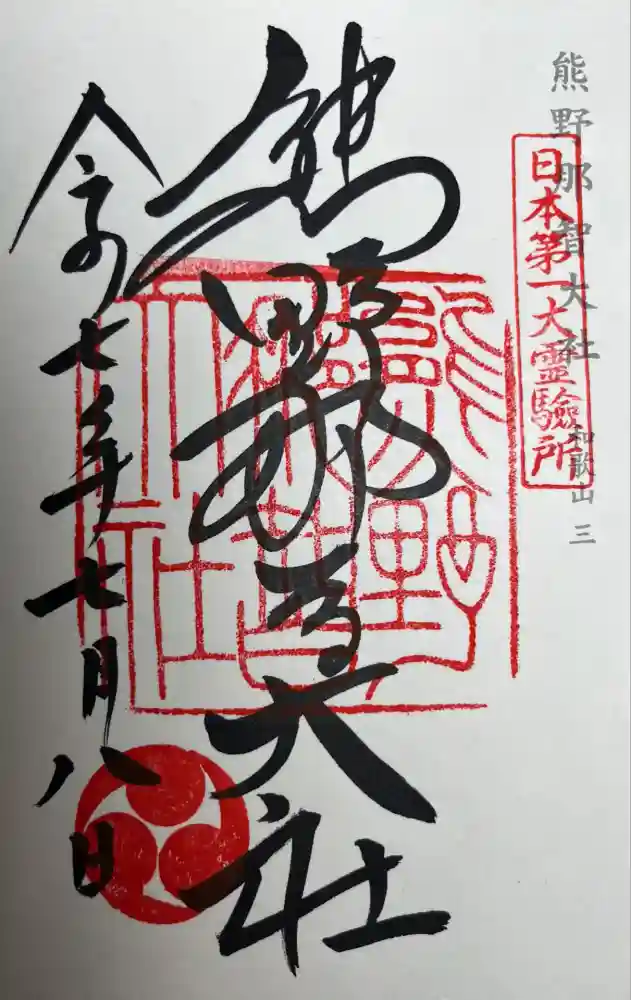 熊野那智大社
和歌山 三
日本第一大霊験所
熊野那智大社
令和七年七月八日